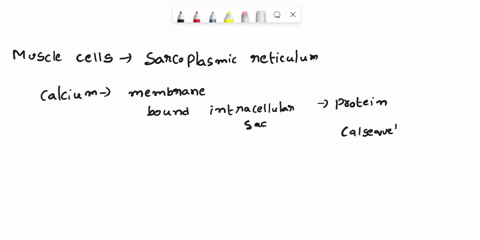 Muscle cells → Sarcoplasmic reticulum
Calcium → membrane
bound intracellular → protein
sac